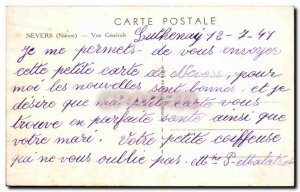 CARTE POSTALE
NEVERS (Nièvre) — Vue Générale
Luthenay 12-7-41
Je me permets de vous envoyer
cette petite carte de Nevers, pour
moi les nouvelles sont bonnes, et je
désire que ma petite carte vous
trouve en parfaite santé ainsi que
votre mari. Votre petite coiffeuse
qui ne vous oublie pas. Mme P.